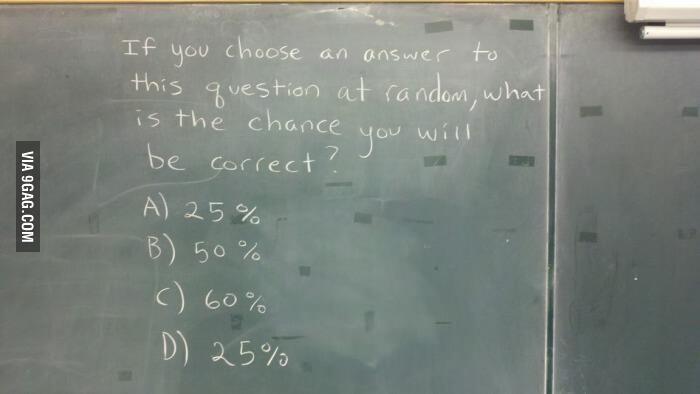 If you choose an answer to
this question at random, what
is the chance you will
be correct?
A) 25%
B) 50%
C) 60%
D) 25%
VIA 9GAG.COM